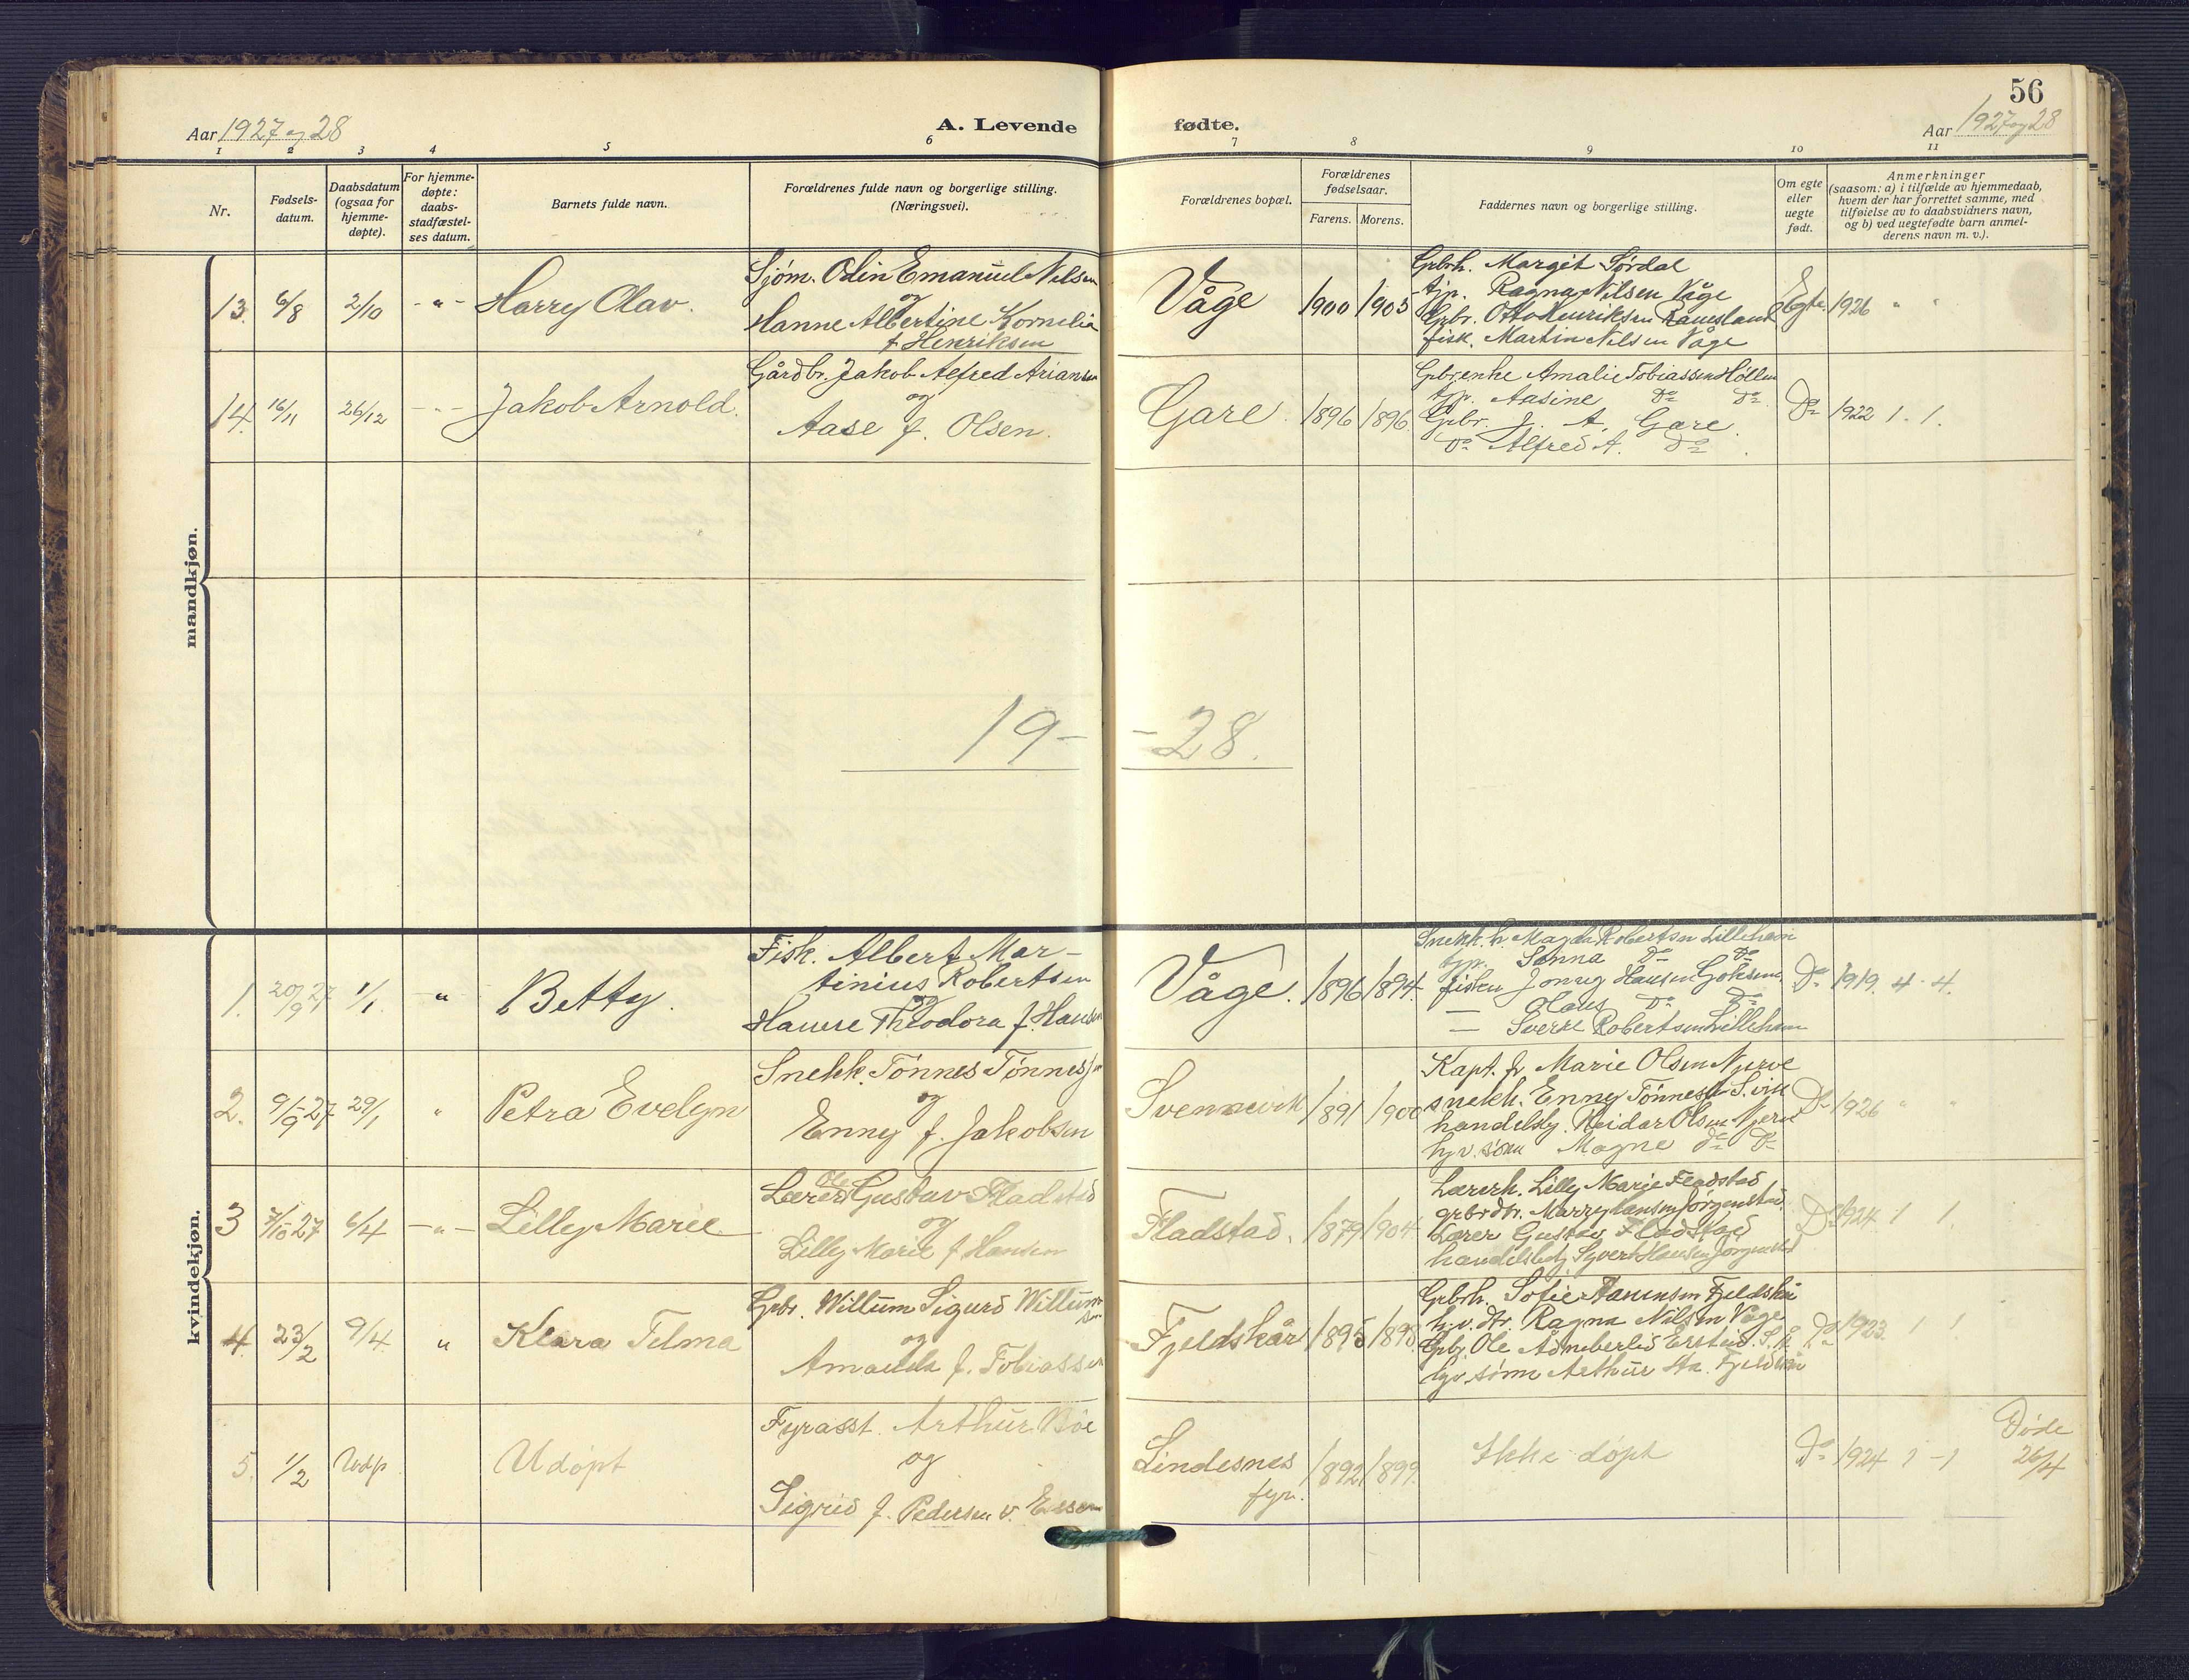 56
Aar 1927 og 28
A. Levende fødte.
Aar 1927 og 28
1 2 3 4 5 6 7 8 9 10 11
Nr.
Fødsels-
datum.
Daabsdatum
(ogsaa for
hjemme-
døpte).
For hjemme-
døpte:
daabs-
stadfæstel-
ses datum.
Barnets fulde navn.
Forældrenes fulde navn og borgerlige stilling.
(Næringsvei).
Forældrenes bopæl.
Forældrenes
fødselsaar.
Farens. Morens.
Faddernes navn og borgerlige stilling.
Om egte
eller
uegte
født.
Anmerkninger
(saasom: a) i tilfælde av hjemmedaab,
hvem der har forrettet samme, med
tilføielse av to daabsvidners navn,
og b) ved uegtefødte barn anmel-
derens navn m. v.).
mandkjøn.
13. 6/8 2/10 - " - Harry Olav.
Sjøm. Odin Emanuel Nilsen
og
Hanne Albertine Kornelia
f. Henriksen
Våge 1900 1905
Gbrh. Margit Sørdal
tjp. Ragna Nilsen Våge
Gbr. Otto Henriksen
fisk. Martin Nilsen Våge
Egte. 1926 " "
14. 16/11 26/12 - " - Jakob Arnold.
Gårdbr. Jakob Alfred Ariansen
og
Aase f. Olsen.
Gare. 1896 1896.
Gbrenke Amalie Tobiassen Høllen
tjp. Aasine Do Do
Gbr. J. A. Gare.
Do Alfred A. Do
Do 1922 1. 1.
19- -28.
kvindekjøn.
1. 20/9 27 1/1 " Betty.
Fisk. Albert Mar-
tinius Robertsen
og
Hanne Theodora f. Hansen
Våge. 1896 1894.
Snekk. h. Magda Robertsen Lillehavn
tjp. Sanna Do Do
fisker Jonny Hansen
Hans Do Do
— Sverre Robertsen Lillehavn
Do 1919. 4. 4.
2. 9/9 27 29/1 " Petra Evelyn
Snekk. Tønnes Tønnessen
og
Enny f. Jakobsen
Svennevik 1891 1900
Kapt. fr. Marie Olsen Njerve
snekk. Enny Tønnessen S.vik
handelsbtj. Reidar Olsen Njerve
hjv. sønn Magne Do Do
Do 1926 " "
3 7/10 27 6/4 - " - Lilly Marie
Lærer Ole Gustav Fladstad
og
Lilly Marie f. Hansen
Fladstad. 1879 1904
Lærerh. Lilly Marie Fladstad
gbrdtr. Marry Hansen Jørgenstad.
Lærer Gustav Fladstad
handelsbtj. Syvert Hansen Jørgenstad
Do 1924 1 1.
4. 23/2 9/4. " Klara Telma
Gbr. Willum Sigurd Willumsen
og
Amanda f. Tobiassen
Fjeldskår 1895 1898.
Gbrh. Sofie Hansen Fjeldskår
hjv. dtr. Ragna Nilsen Våge
Gbr. Ole
hjv. sønn Arthur Ha. Fjeldskår
Do 1923. 1 1.
5. 1/2 Udp Udøpt
Fyrasst. Arthur Bøe
og
Sigrid f. Pedersen v. Essen
Lindesnes
fyr. 1892 1899.
Ikke døpt
Do 1924 1 -1
Døde
26/4